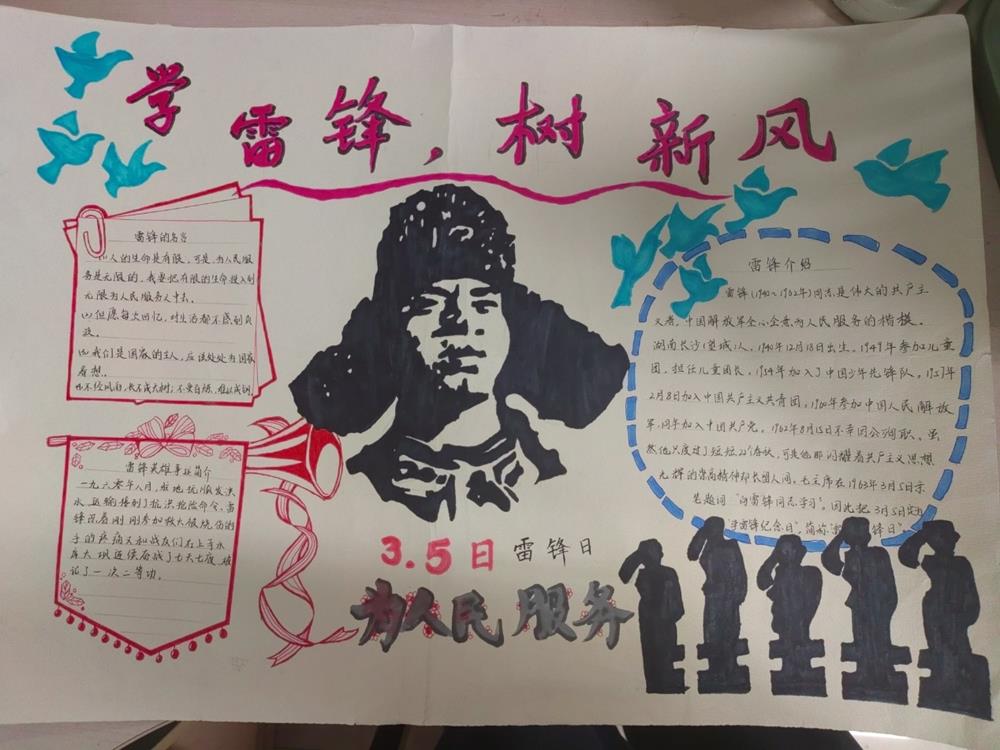 学雷锋，树新风
雷锋的名言
人的生命是有限，可是，为人民服
务是无限的，我要把有限的生命投入到
无限为人民服务之中去。
但愿每次回忆，对生活都不感到负
疚。
我们是国家的主人，应该处处为国家
着想。
不经风雨，长不成大树；不受百炼，难以成钢
雷锋英雄事迹简介
一九六零年八月，驻地抚顺发洪
水，运输接到了抗洪抢险命令，雷
锋忍着刚刚参加救火被烧伤的
手的疼痛又和战友们在上寺水
库大坝连续奋战了七天七夜，被
记了一次二等功。
3.5日 雷锋日
为人民服务
雷锋介绍
雷锋(1940~1962年)同志是伟大的共产主
义者，中国解放军全心全意为人民服务的楷模。
湖南长沙(望城)人，1940年12月18日出生。1949年参加儿童
团，担任儿童团长，1954年加入了中国少年先锋队。1957年
2月8日加入中国共产主义共青团，1960年参加中国人民解放
军，同年加入中国共产党。1962年8月15日不幸因公殉职。虽
然他只度过了短短22个春秋，可是他那闪耀着共产主义思想
光辉的崇高精神却长留人间。毛主席在1963年3月5日亲
笔题词“向雷锋同志学习”。因此把3月5日定为
“学雷锋纪念日”。简称“雷锋日”